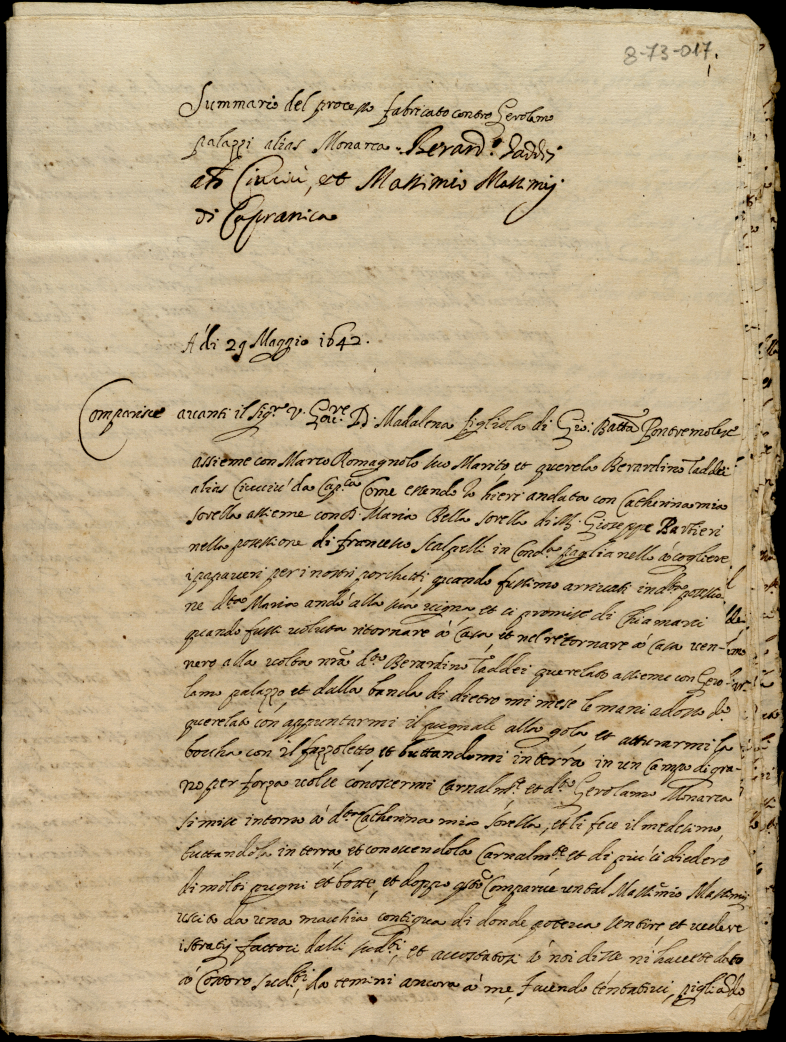 8-73-017.
1
Summario del processo fabricato contro Gerolamo
palazzi alias Monarca. Berard.º Taddei
als Ciucciù, et Massimio Massimij
di Capranica
A di 29 Maggio 1642.
Comparisce avanti il Sig.r V. Gov.re D. Madalena figliola di Gio: Batta Pontremolese
assieme con Marco Romagnolo suo Marito et querela Berardino Taddei
alias Ciucciù da Cap.ca Come essendo Io hieri andata con Catherina mia
sorella assieme con D. Maria Bella sorella di M. Gioseppe Barbieri
nella possessione di francesco Scalpelli in Con.da paglianello a cogliere
i papaveri per i nostri porchetti quando fussimo arrivati in d.ta possessio
ne d.ta Maria andò alla sua vigna, et ci promise di Chiamarci
quando fusse voluta ritornare à Casa, et nel retornare à Casa ven-
nero alla volta nra d.to Berardino Taddei querelato assieme con Gero-
lamo palazzo, et dalla banda di dietro mi mese le mani adosso d.o
querelato con appuntarmi il pugnale alla gola et atturarmi la
boccha con il fazzoletto, et buttandomi in terra in un Campo di gra-
no per forza volse conoscermi Carnalm.te et d.to Gerolamo Monarca
si mise intorno à d.ta Catherina mia sorella, et li fece il medesimo,
buttandola in terra, et conoscendola Carnalm.te et di più ci diedero
di molti pugni et botte, et doppo q.sto Comparve un tal Massimio Massimij
uscito da una macchia contigua di donde poteva sentire et vedere
i stratij fattoci dalli sud.ti, et accostatosi à noi disse n'havete dato
à Costoro sud.ti, da temini ancora à me, facendo tentativi, pigliando